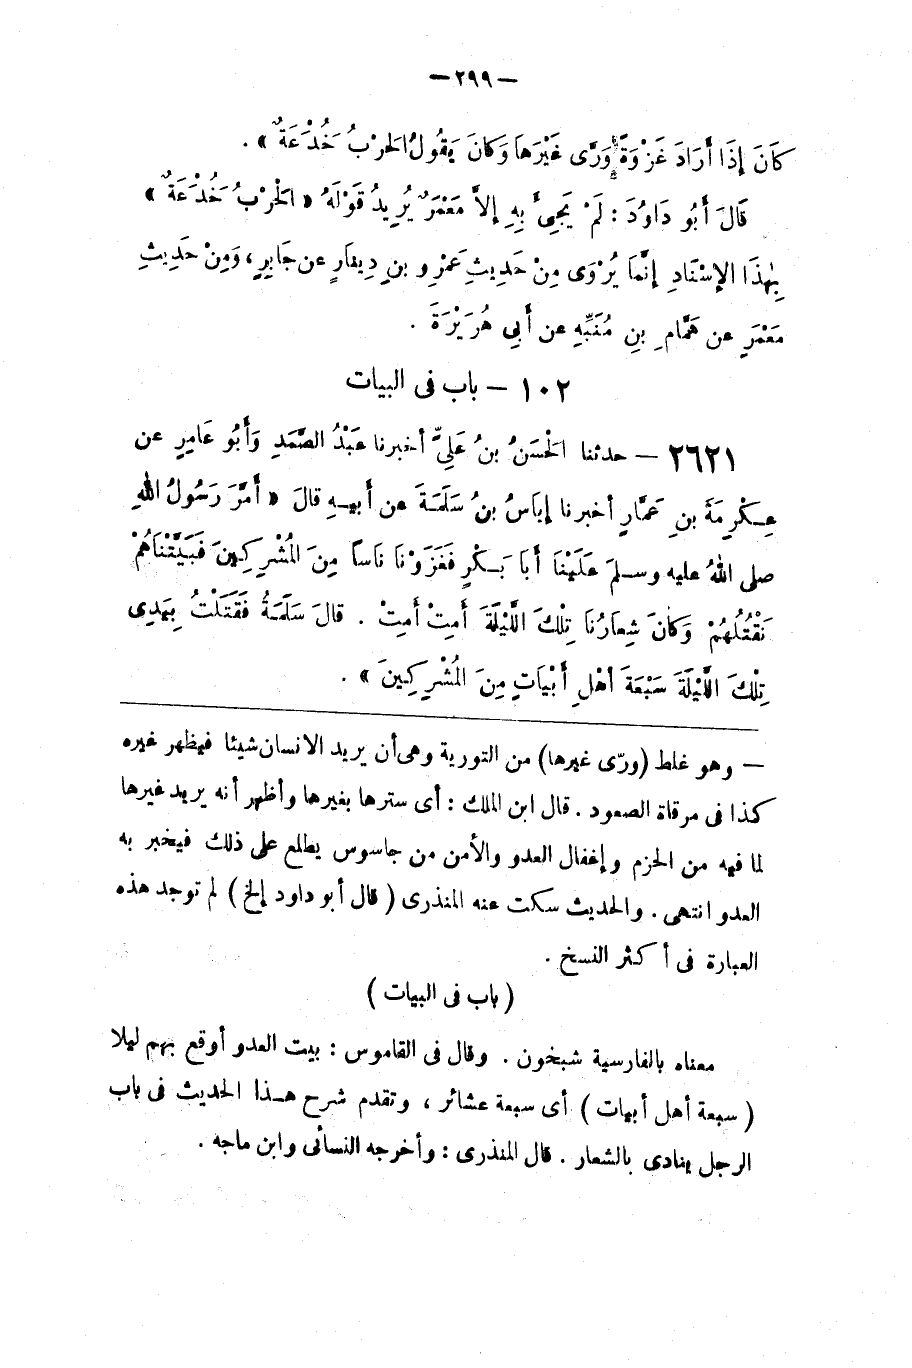 — ٢٩٩ —
كَانَ إِذَا أَرَادَ غَزْوَةً وَرَّى غَيْرَهَا وَكَانَ يَقُولُ الحَرْبُ خُدْعَةٌ » .
قَالَ أَبُو دَاوُدَ : لَمْ يَجِئْ بِهِ إِلاَّ مَعْمَرٌ يُرِيدُ قَوْلَهُ « الحَرْبُ خُدْعَةٌ »
بِهٰذَا الإِسْنَادِ إِنَّمَا يُرْوَى مِنْ حَدِيثِ عَمْرِو بنِ دِينَارٍ عن جَابِرٍ ، وَمِنْ حَدِيثِ
مَعْمَرٍ عن هَمَّامِ بنِ مُنَبِّهٍ عن أَبِي هُرَيْرَةَ .
١٠٢ — باب فى البيات
٢٦٢١ — حدثنا الحَسَنُ بنُ عَلِيٍّ أخبرنا عَبْدُ الصَّمَدِ وَأَبُو عَامِرٍ عن
عِكْرِمَةَ بنِ عَمَّارٍ أخبرنا إِيَاسُ بنُ سَلَمَةَ عن أَبِيهِ قالَ « أَمَّرَ رَسُولُ اللهِ
صلى اللهُ عليه وسلمَ عَلَيْنَا أَبَا بَكْرٍ فَغَزَوْنَا نَاسًا مِنَ المُشْرِكِينَ فَبَيَّتْنَاهُمْ
نَقْتُلُهُمْ وَكَانَ شِعَارُنَا تِلْكَ اللَّيْلَةَ أَمِتْ أَمِتْ . قالَ سَلَمَةُ فَقَتَلْتُ بِيَدِى
تِلْكَ اللَّيْلَةَ سَبْعَةَ أَهْلِ أَبْيَاتٍ مِنَ المُشْرِكِينَ » .
— وهو غلط (ورّى غيرها) من التورية وهى أن يريد الانسان شيئا فيظهر غيره
كذا فى مرقاة الصعود . قال ابن الملك : أى سترها بغيرها وأظهر أنه يريد غيرها
لما فيه من الحزم وإغفال العدو والأمن من جاسوس يطلع على ذلك فيخبر به
العدو انتهى . والحديث سكت عنه المنذرى ( قال أبو داود إلخ ) لم توجد هذه
العبارة فى أكثر النسخ .
( باب فى البيات )
معناه بالفارسية شبخون . وقال فى القاموس : بيت العدو أوقع بهم ليلا
( سبعة أهل أبيات ) أى سبعة عشائر ، وتقدم شرح هذا الحديث فى باب
الرجل ينادى بالشعار . قال المنذرى : وأخرجه النسائى وابن ماجه .